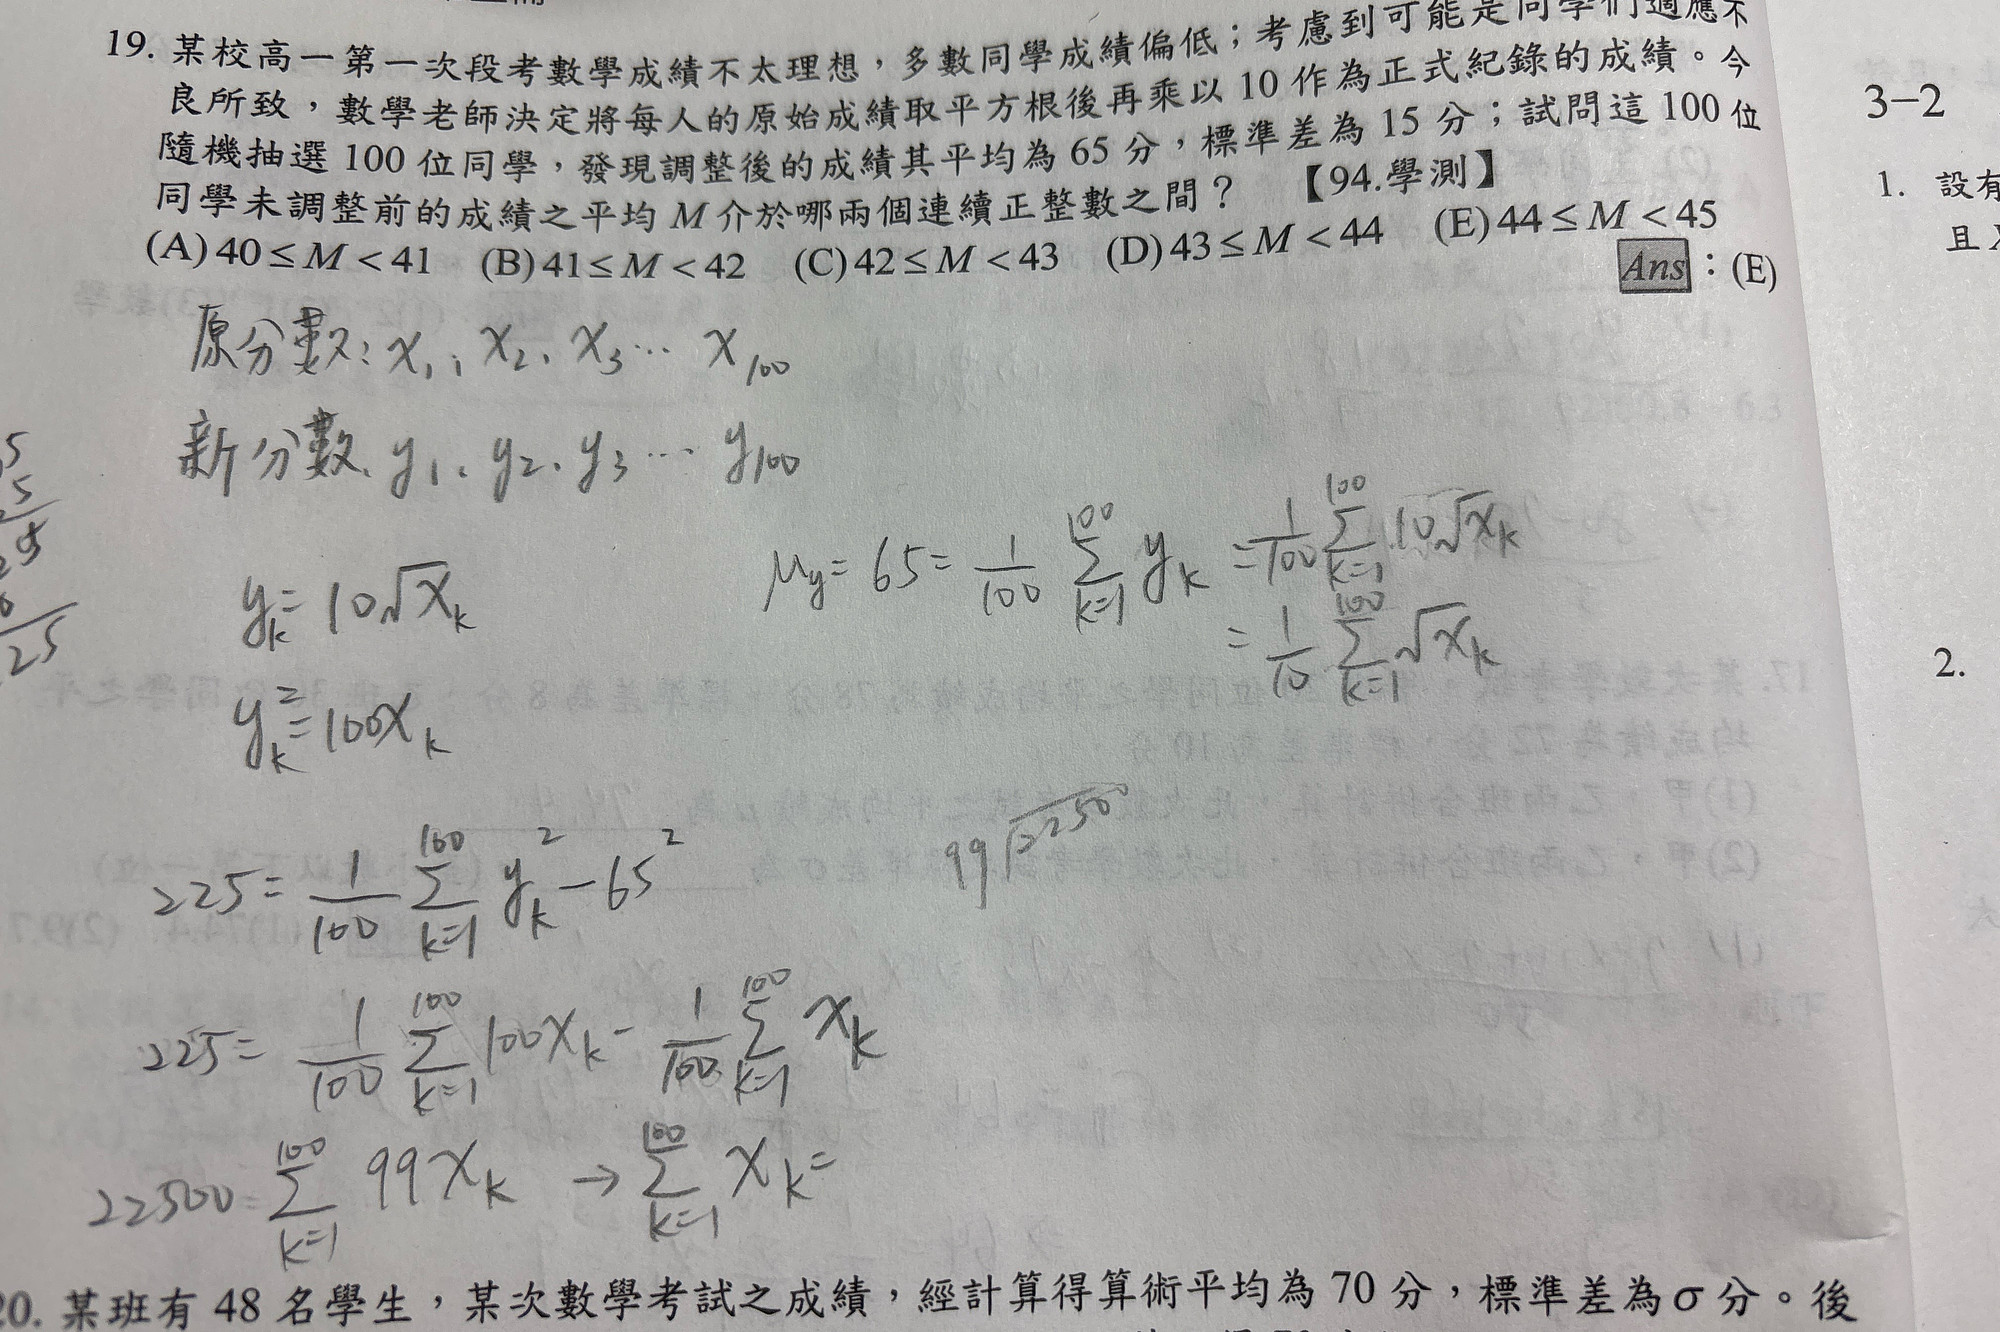 19. 某校高一第一次段考數學成績不太理想，多數同學成績偏低；考慮到可能是同學們適應不
良所致，數學老師決定將每人的原始成績取平方根後再乘以 10 作為正式紀錄的成績。今
隨機抽選 100 位同學，發現調整後的成績其平均為 65 分，標準差為 15 分；試問這 100 位
同學未調整前的成績之平均 M 介於哪兩個連續正整數之間？ 【94.學測】
(A) 40 ≤ M < 41 (B) 41 ≤ M < 42 (C) 42 ≤ M < 43 (D) 43 ≤ M < 44 (E) 44 ≤ M < 45
Ans：(E)
原分數: x₁, x₂、x₃… x₁₀₀
新分數、y₁、y₂、y₃… y₁₀₀
y_k = 10√x_k
μ_y = 65 = 1/100 Σ_{k=1}^{100} y_k = 1/100 Σ_{k=1}^{100} 10√x_k
= 1/10 Σ_{k=1}^{100} √x_k
y_k² = 100x_k
225 = 1/100 Σ_{k=1}^{100} y_k² - 65²
99 22500
225 = 1/100 Σ_{k=1}^{100} 100x_k - 1/100 Σ_{k=1}^{100} x_k
22500 = Σ_{k=1}^{100} 99x_k → Σ_{k=1}^{100} x_k =
20. 某班有 48 名學生，某次數學考試之成績，經計算得算術平均為 70 分，標準差為 σ 分。後
3-2
1. 設有
且
2.
5
5
25